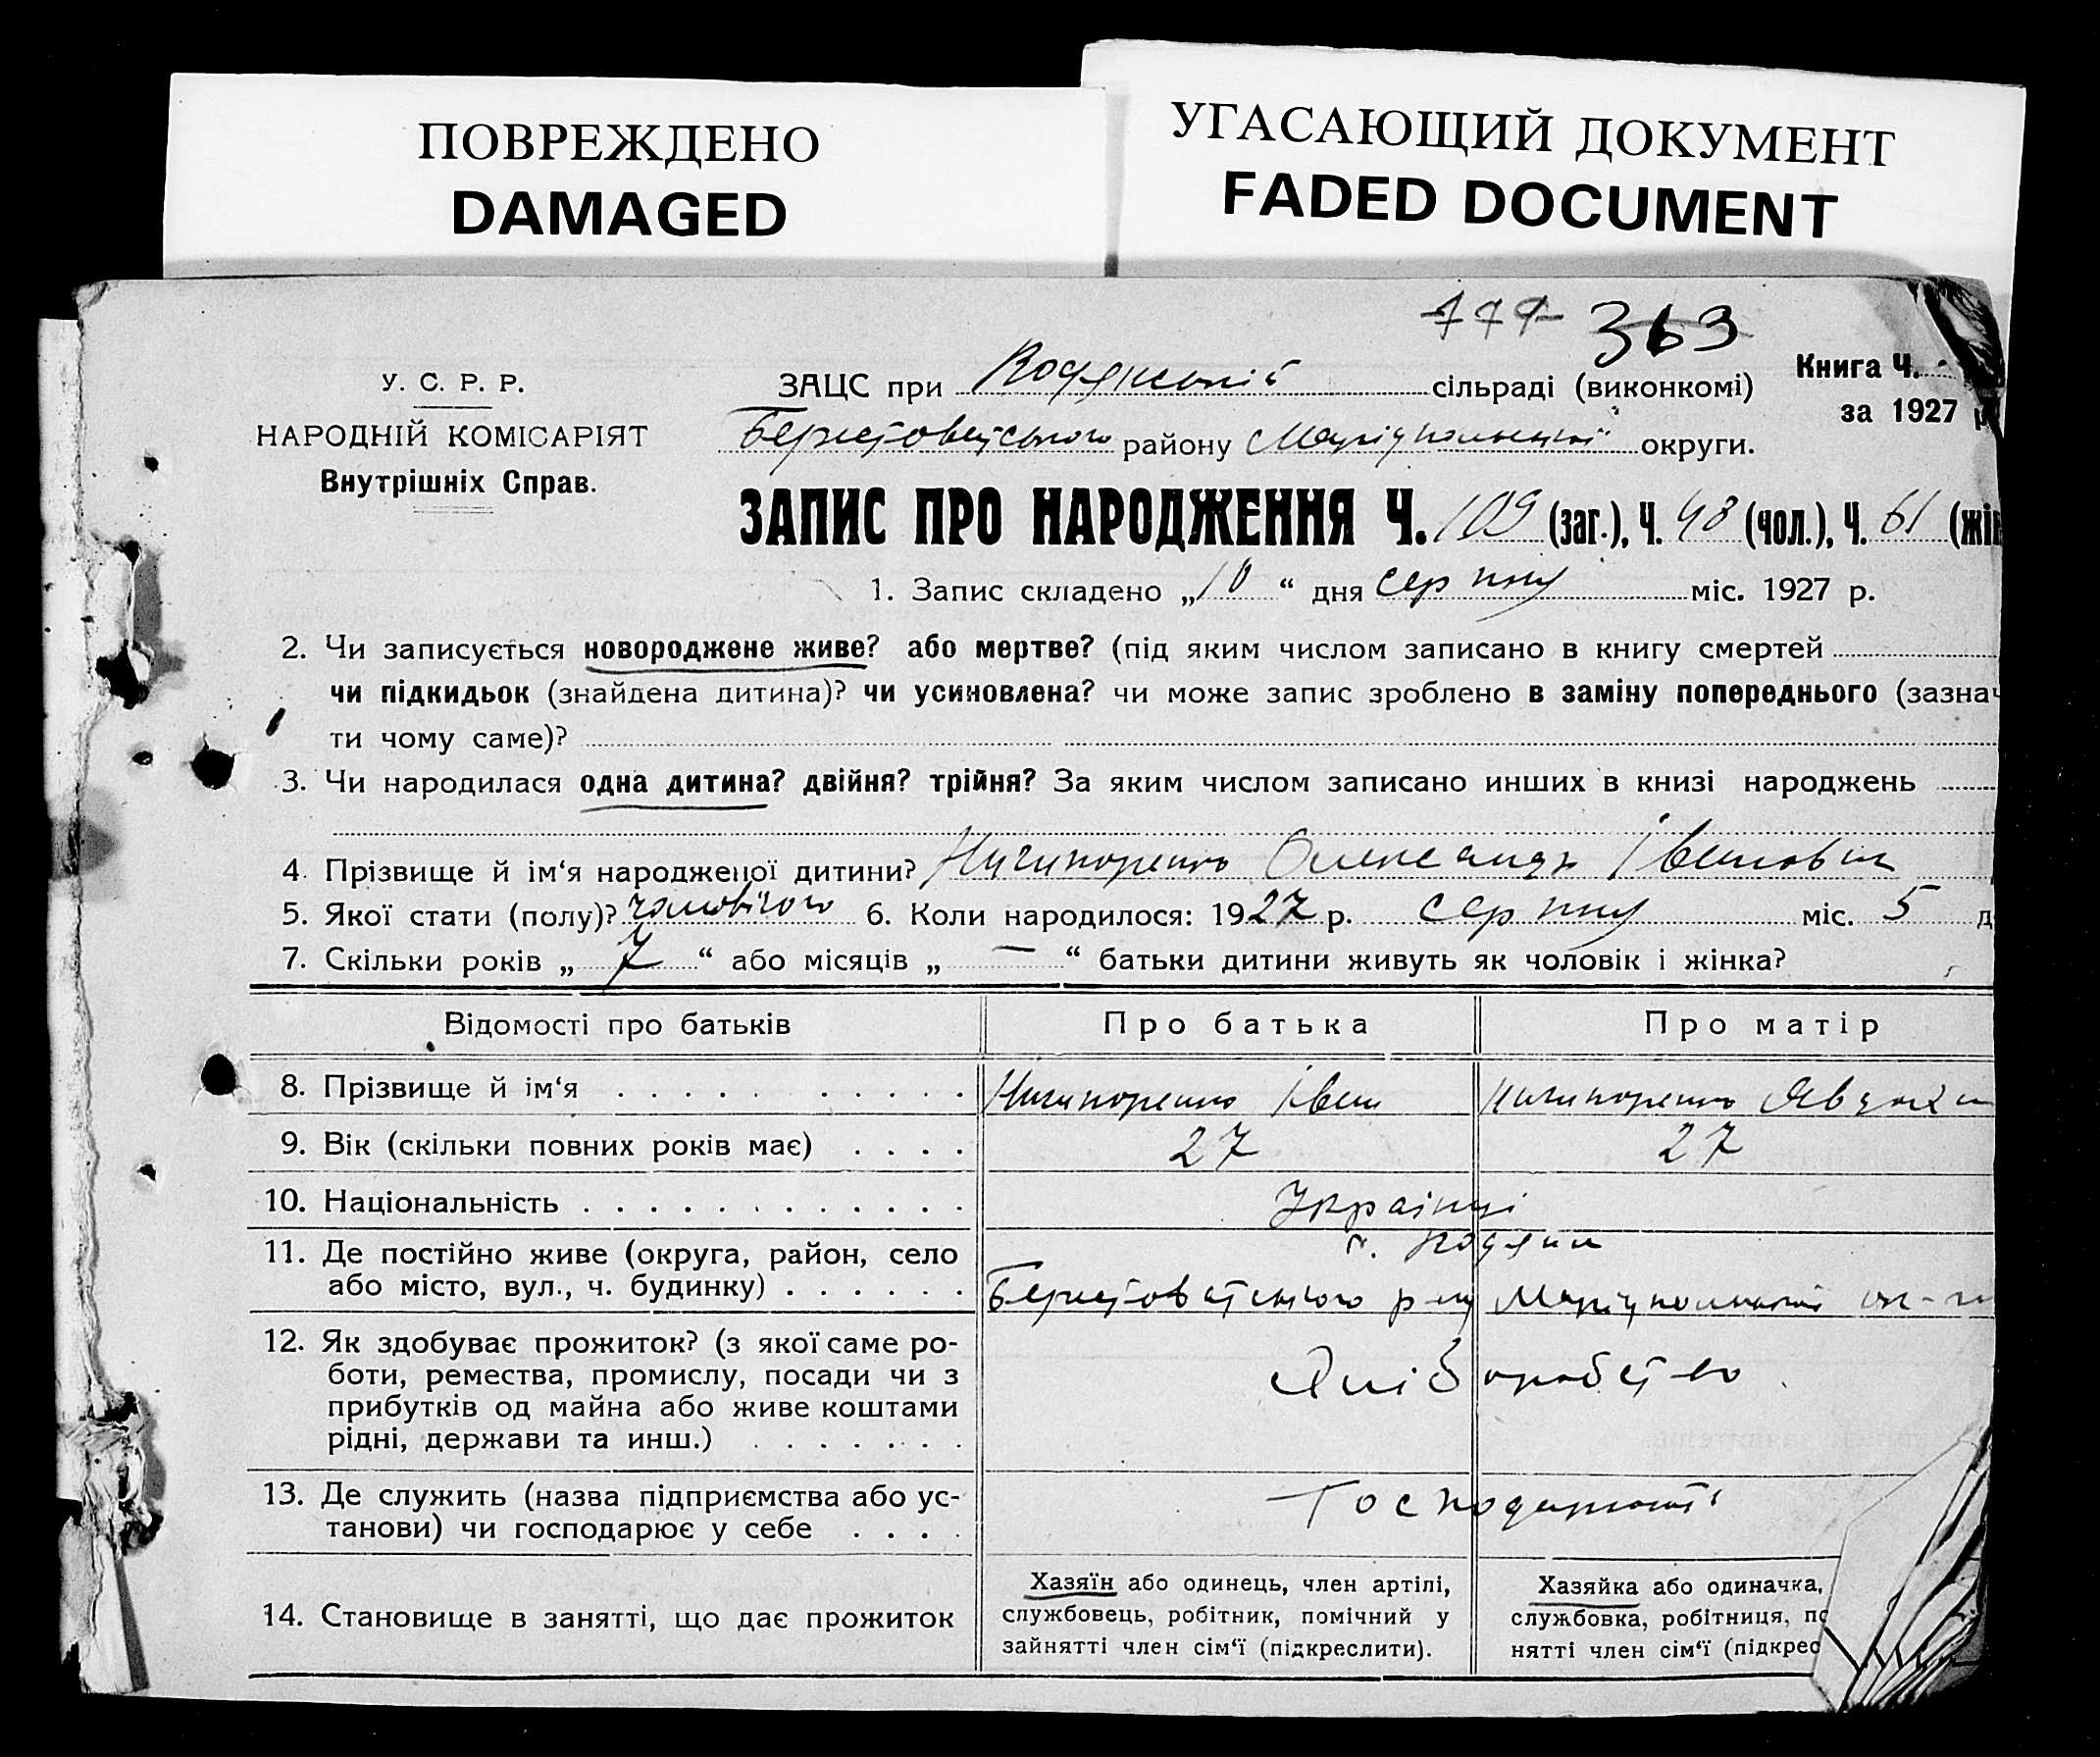 ПОВРЕЖДЕНО
DAMAGED
УГАСАЮЩИЙ ДОКУМЕНТ
FADED DOCUMENT
363
У. С. Р. Р.
НАРОДНІЙ КОМІСАРІЯТ
Внутрішніх Справ.
ЗАЦС при сільраді (виконкомі)
Книга Ч.
за 1927
району Маріупольської округи.
ЗАПИС ПРО НАРОДЖЕННЯ Ч. 109 (заг.), Ч. 48 (чол.), Ч. 61 (жін
1. Запис складено „10“ дня серпня міс. 1927 р.
2. Чи записується новороджене живе? або мертве? (під яким числом записано в книгу смертей
чи підкидьок (знайдена дитина)? чи усиновлена? чи може запис зроблено в заміну попереднього (зазнач
ти чому саме)?
3. Чи народилася одна дитина? двійня? трійня? За яким числом записано инших в книзі народжень
4. Прізвище й ім‘я народженої дитини? Ничипоренко Олександр Іванович
5. Якої стати (полу)? чоловічого 6. Коли народилося: 1927 р. серпня міс. 5 д
7. Скільки років „7“ або місяців „—“ батьки дитини живуть як чоловік і жінка?
Відомості про батьків Про батька Про матір
8. Прізвище й ім‘я Ничипоренко Іван Ничипоренко
9. Вік (скільки повних років має) 27 27
10. Національність Українці
11. Де постійно живе (округа, район, село
або місто, вул., ч. будинку) Маріупольської
12. Як здобуває прожиток? (з якої саме ро-
боти, ремества, промислу, посади чи з
прибутків од майна або живе коштами
рідні, держави та инш.) Хліборобство
13. Де служить (назва підприємства або ус-
танови) чи господарює у себе
14. Становище в занятті, що дає прожиток
Хазяїн або одинець, член артілі,
службовець, робітник, помічний у
зайнятті член сім‘ї (підкреслити).
Хазяйка або одиначка,
службовка, робітниця, по
нятті член сім‘ї (підкрес